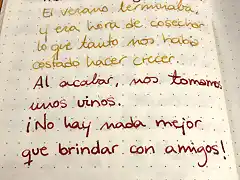 El verano terminaba,
y era hora de cosechar
lo que tanto nos había
costado hacer crecer.
Al acabar, nos tomamos
unos vinos.
¡No hay nada mejor
que brindar con amigos!